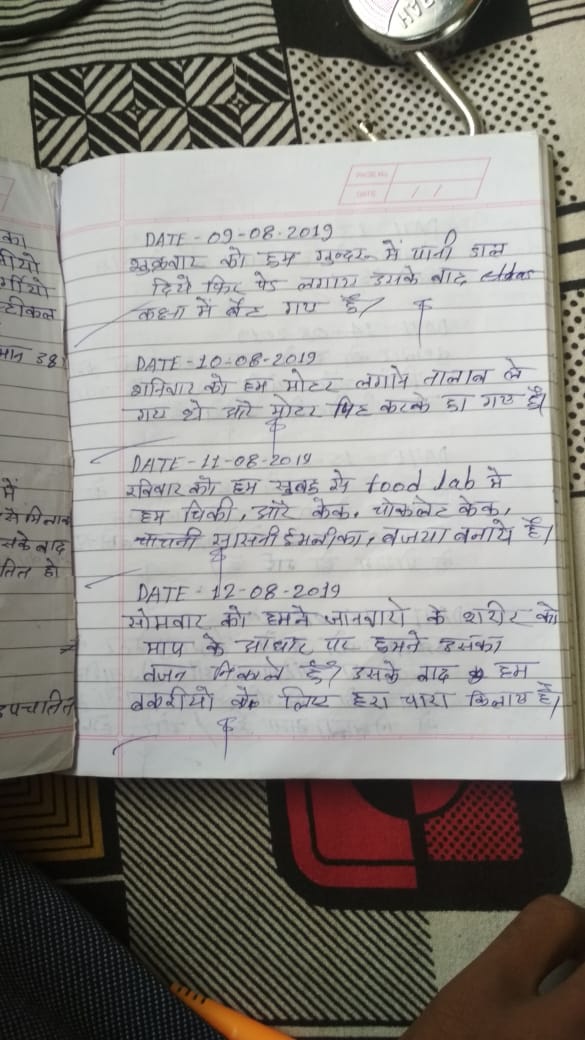 RAH
PAGE No.
DATE / /
का
गीयो
टीकल
मान 381
में
से मिलाव
सके बाद
तित हो
उपचातित
DATE - 09-08-2019
शुक्रवार को हम में पानी डाल
दिये फिर पेड लगाय उसके बाद
कक्षा में बैट गए है/
DATE -10-08-2019
शनिवार को हम मोटर लगाये तालाब ले
गय थे और मोटर फिट करके आ गए है।
DATE -11-08-2019
रविवार को हम सुबह से food lab मे
हम चिकी, और केक, चोकलेट केक,
बनाये है।
DATE - 12-08-2019
सोमवार को हमने जानवारो के शरीर को
माप के आधार पर हमने उसका
वजन निकाले है? उसके बाद हम
बकरीयो के लिए हरा चारा है।